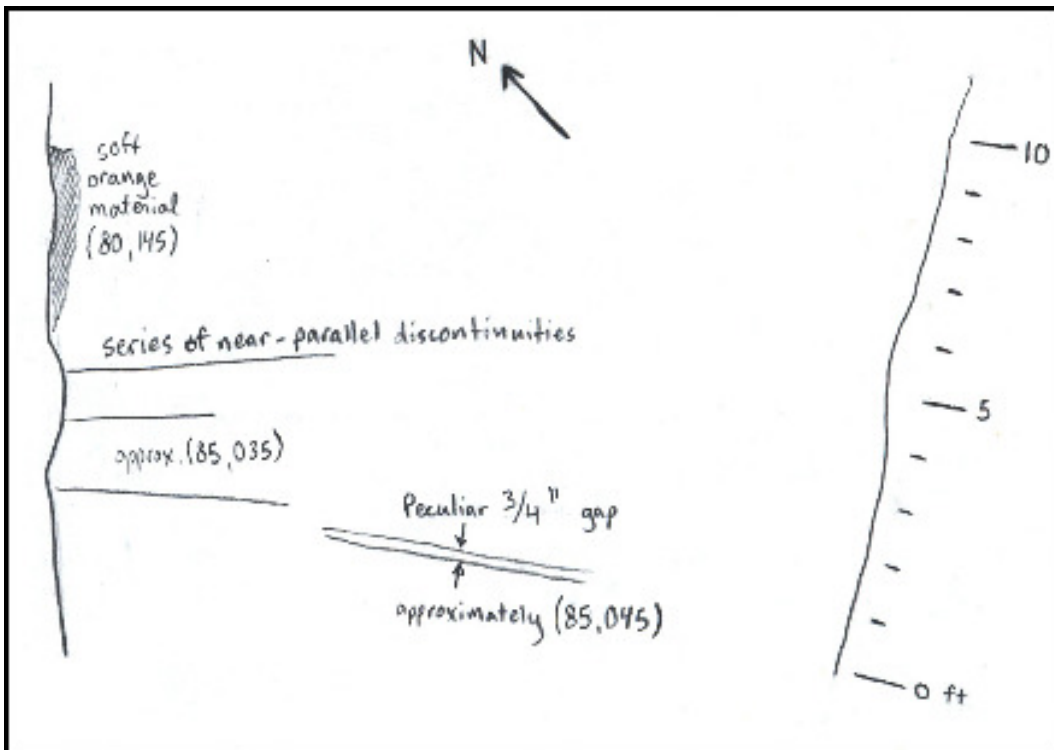 N
soft
orange
material
(80,145)
10
series of near-parallel discontinuities
5
approx. (85,035)
Peculiar 3/4" gap
approximately (85,045)
0 ft